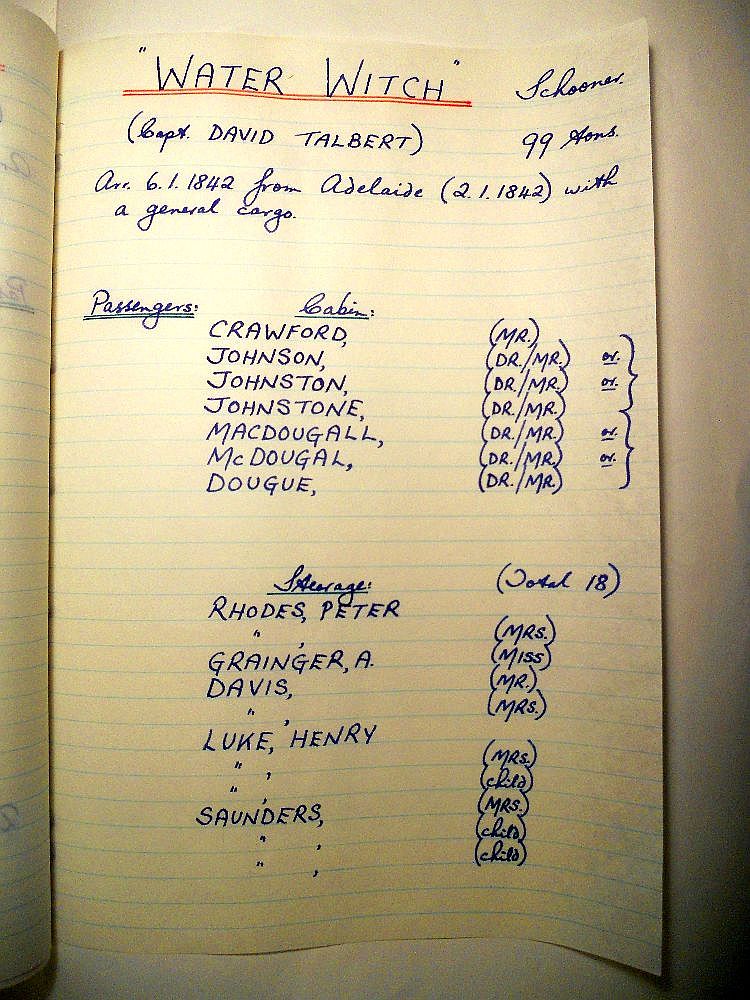 "WATER WITCH" Schooner.
(Capt. DAVID TALBERT) 99 tons.
Arr. 6.1.1842 from Adelaide (2.1.1842) with
a general cargo.
Passengers: Cabin:
CRAWFORD, (MR.)
JOHNSON, (DR./MR.) or.
JOHNSTON, (DR./MR.) or.
JOHNSTONE, (DR./MR.)
MACDOUGALL, (DR./MR.) or.
McDOUGAL, (DR./MR.) or.
DOUGUE, (DR./MR.)
Steerage: (Total 18)
RHODES, PETER
" , (MRS.)
GRAINGER, A. (MISS)
DAVIS, (MR.)
" , (MRS.)
LUKE, HENRY
" , (MRS.)
" , (child)
SAUNDERS, (MRS.)
" , (child)
" , (child)